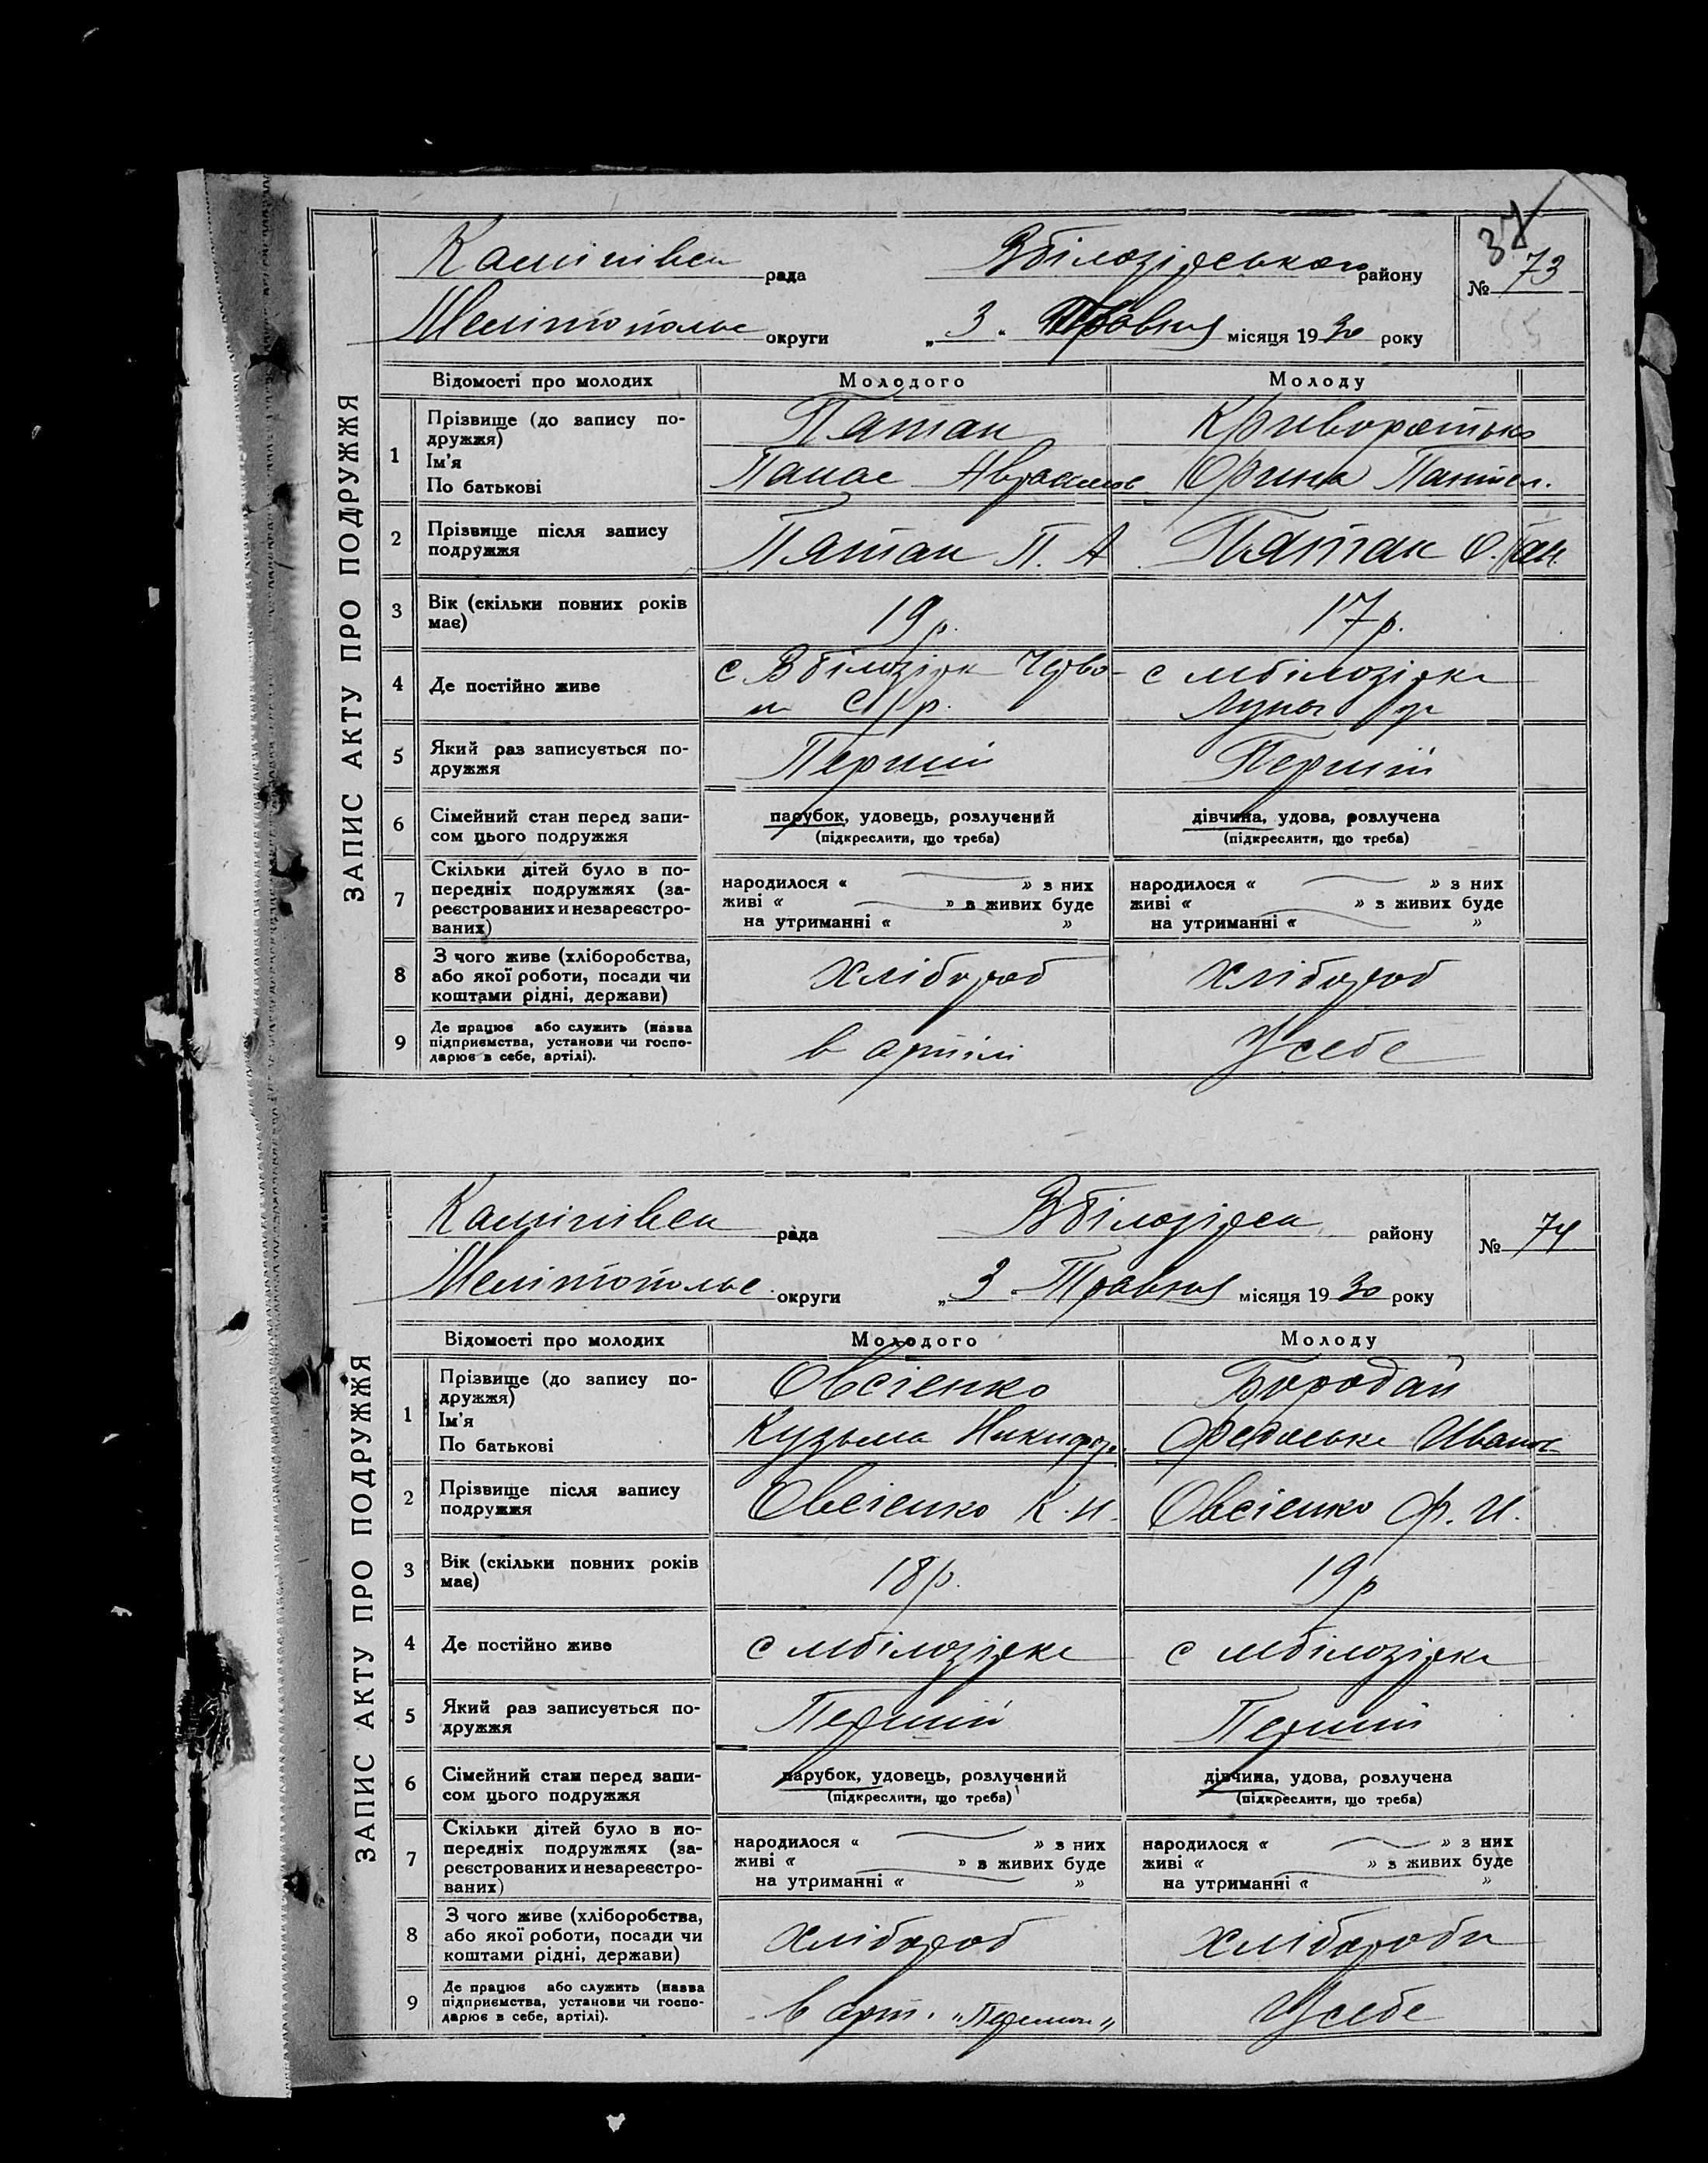 ЗАПИС АКТУ ПРО ПОДРУЖЖЯ
рада Вбілозірського району
37
№ 73
Мелітопольс округи „3“ Травня місяця 1930 року
Відомості про молодих Молодого Молоду
1 Прізвище (до запису по-
дружжя)
Ім'я
По батькові
Пятак Криворотько
Панас Аврамов Орина Пантел.
2 Прізвище після запису
подружжя
Пятак П. А Пятак О. Пан.
3 Вік (скільки повних років
має)
19 р. 17 р.
4 Де постійно живе
с Вбілозірк Черво- с мбілозірка
5 Який раз записується по-
дружжя
Перший Перший
6 Сімейний стан перед запи-
сом цього подружжя
парубок, удовець, розлучений дівчина, удова, розлучена
(підкреслити, що треба) (підкреслити, що треба)
7 Скільки дітей було в по-
передніх подружжях (за-
реєстрованих и незареєстро-
ваних)
народилося « » з них народилося « » з них
живі « » з живих буде живі « » з живих буде
на утриманні « » на утриманні « »
8 З чого живе (хліборобства,
або якої роботи, посади чи
коштами рідні, держави)
хлібороб хлібороб
9 Де працює або служить (назва
підприємства, установи чи госпо-
дарює в себе, артілі).
в артілі У себе
ЗАПИС АКТУ ПРО ПОДРУЖЖЯ
рада Вбілозірск району
№ 74
Мелітопольс. округи „3 Травня місяця 1930 року
Відомості про молодих Молодого Молоду
1 Прізвище (до запису по-
дружжя)
Ім'я
По батькові
Овсієнко Бородай
Кузьма Никифор. Федоська Иванов
2 Прізвище після запису
подружжя
Овсієнко К. Н. Овсієнко Ф. И.
3 Вік (скільки повних років
має)
18 р. 19 р
4 Де постійно живе
с мбілозірка с мбілозірка
5 Який раз записується по-
дружжя
Перший Перший
6 Сімейний стан перед запи-
сом цього подружжя
парубок, удовець, розлучений дівчина, удова, розлучена
(підкреслити, що треба) (підкреслити, що треба)
7 Скільки дітей було в по-
передніх подружжях (за-
реєстрованих и незареєстро-
ваних)
народилося « » з них народилося « » з них
живі « » з живих буде живі « » з живих буде
на утриманні « » на утриманні « »
8 З чого живе (хліборобства,
або якої роботи, посади чи
коштами рідні, держави)
хлібороб хлібороби
9 Де працює або служить (назва
підприємства, установи чи госпо-
дарює в себе, артілі).
в арт. У себе